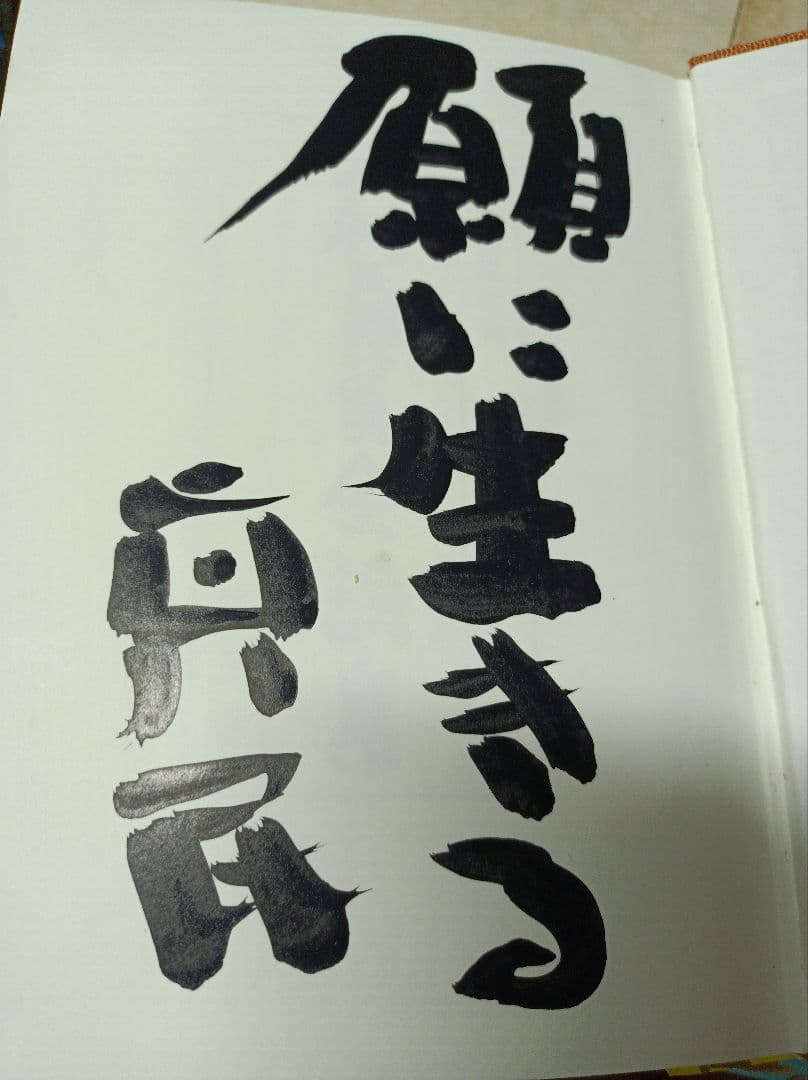 願に生きる
真民